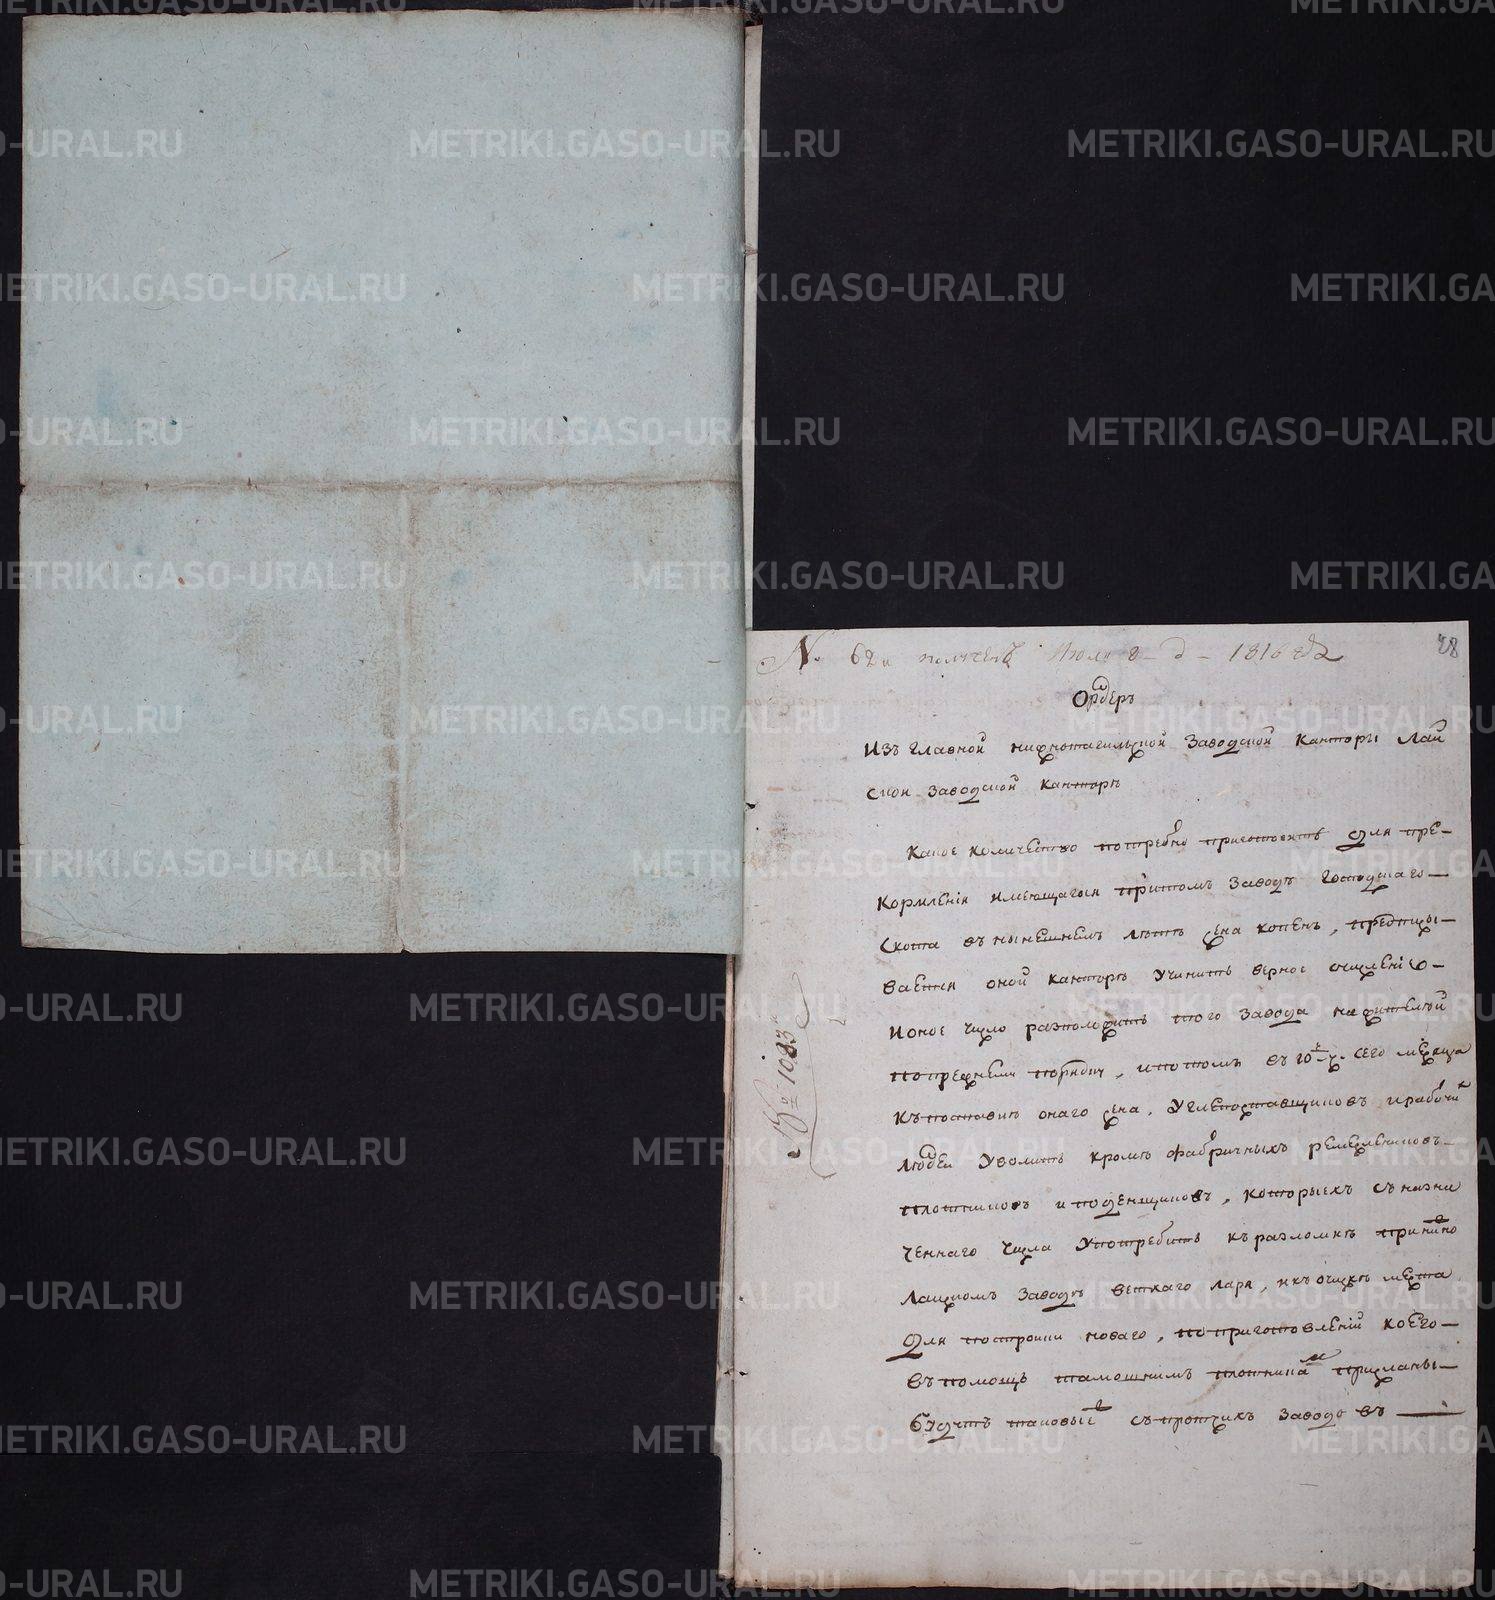 № 62й получен Июля 8 д 1816 года
28
Ордеръ
Изъ главной нижнотагильской Заводской Канторы Лай
ской Заводской Канторѣ
Какое количество потребно приготовить для пре-
кормленія имеющагося притомъ Заводѣ господскаго
скота въ нынешнемъ лѣтѣ сена копенъ, предписы-
вается оной канторѣ учинить верное очисленіе
и оное число разположить того Завода на жителей
попрежнему порядку, и потомъ въ 10 ч. сего месяца
къ поставкѣ онаго сена, углепоставщиковъ и рабочих
людей уволить кромѣ фабричныхъ ремесленниковъ
плотниковъ и поденщиковъ, которыехъ съ назна
ченнаго числа употребить къ разломкѣ при
Лайскомъ Заводѣ ветхаго ларя, и къ очискѣ места
для построики новаго, по приготовленіи коего
въ помощь тамошнимъ плотникам присланы
будутъ таковые съ протчихъ Заводовъ
№ 1083
METRIKI.GASO-URAL.RU